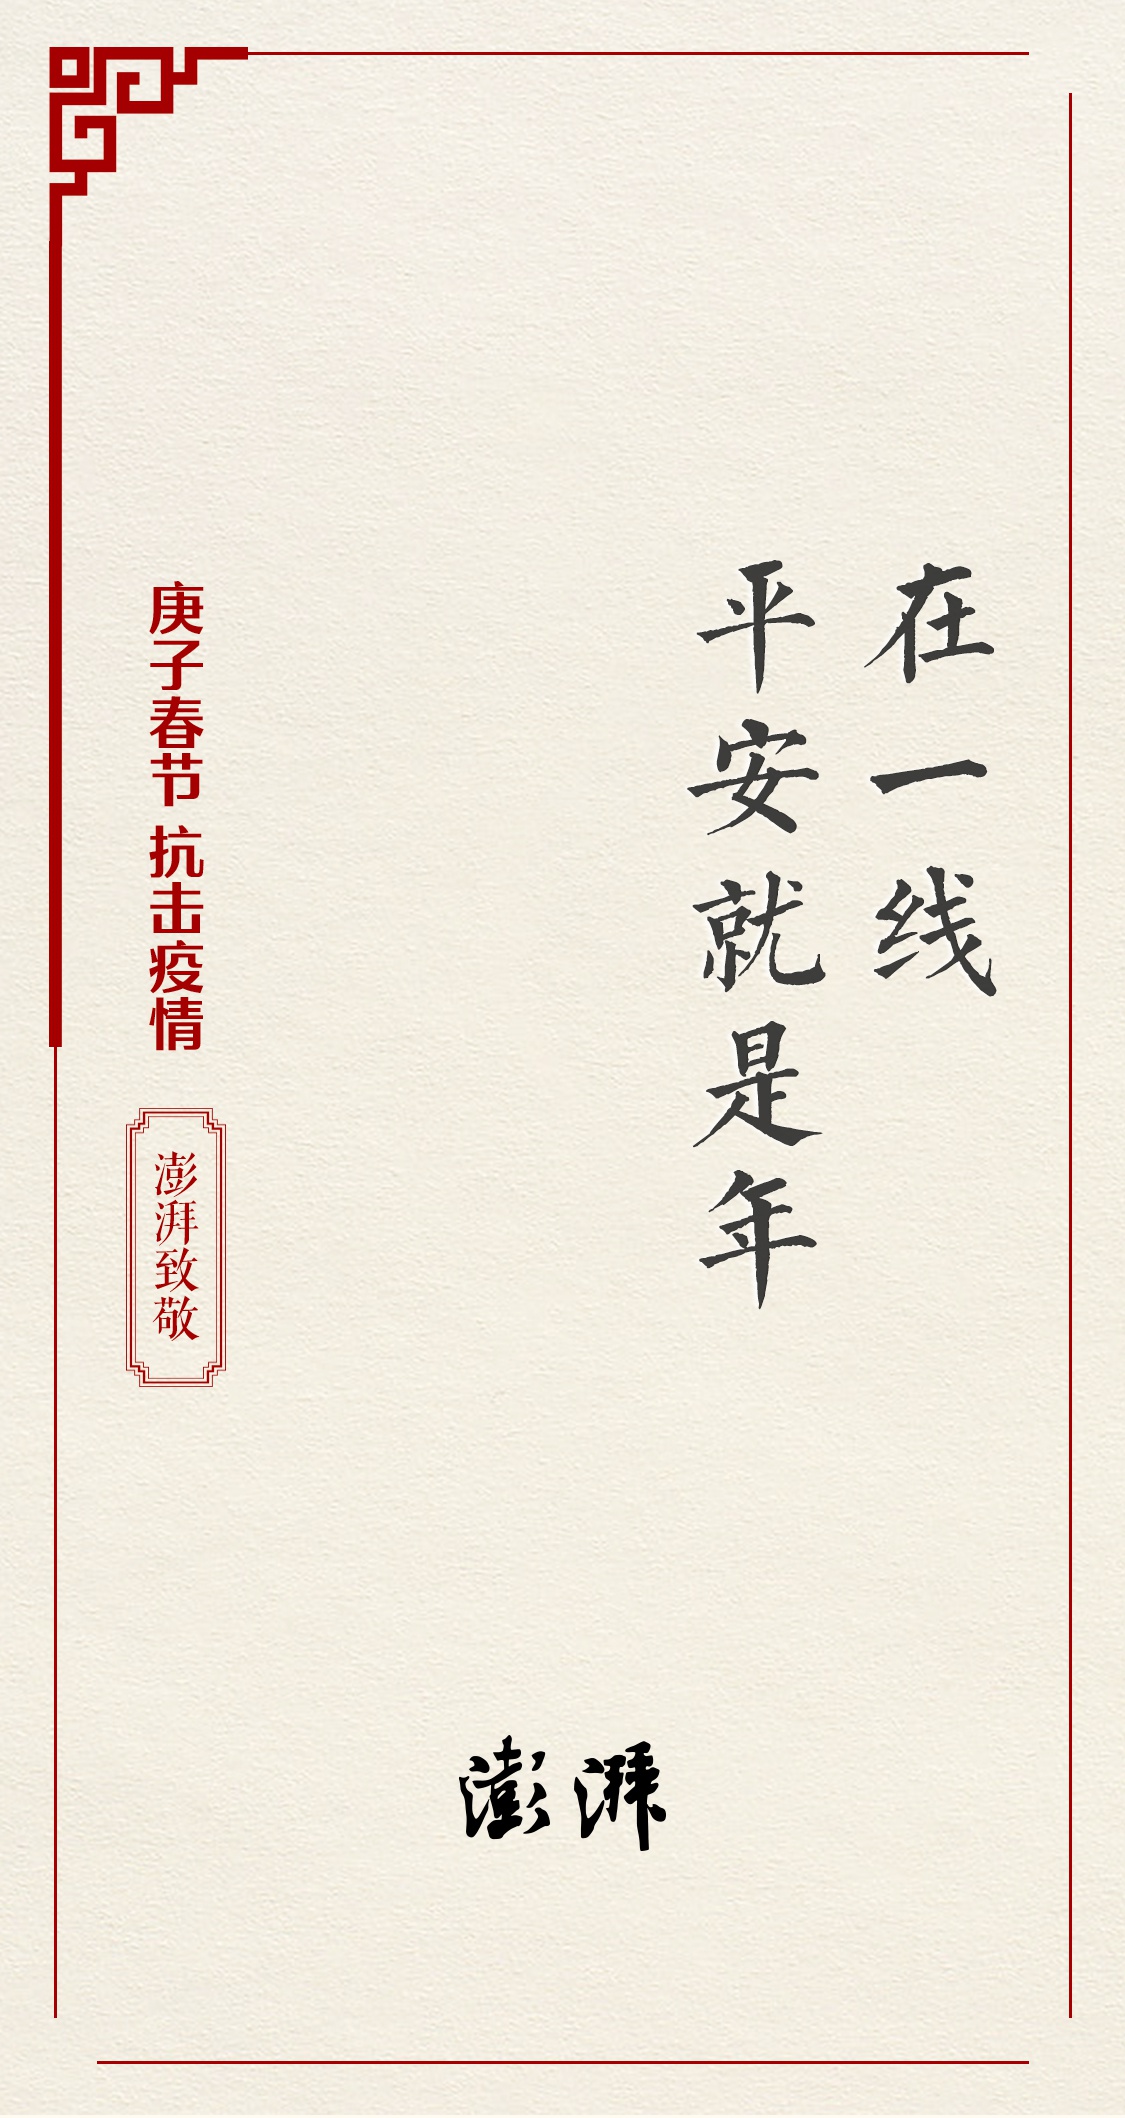 在一线
平安就是年
庚子春节 抗击疫情
澎湃致敬
澎湃